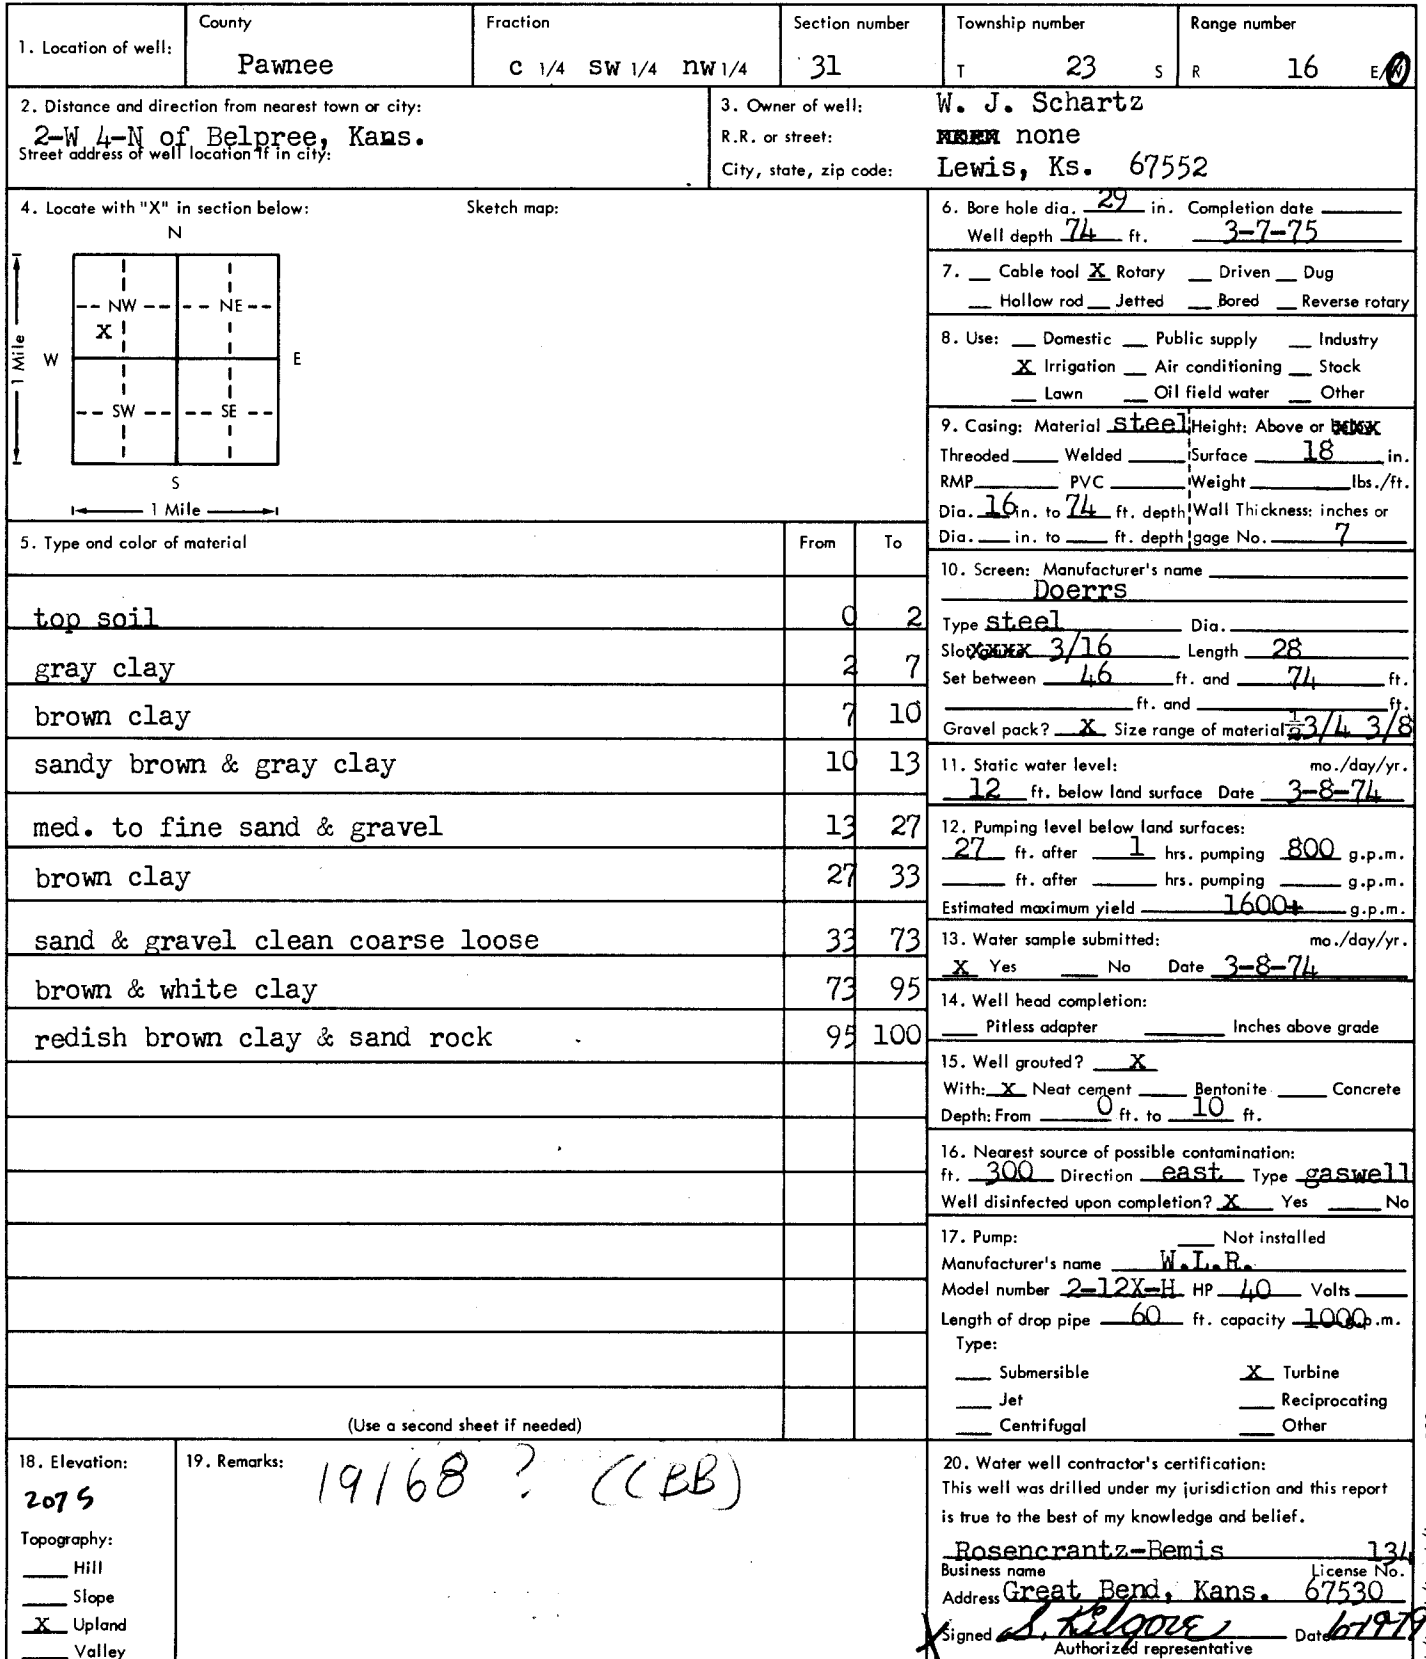 1. Location of well:
County
Pawnee
Fraction
C 1/4 SW 1/4 NW 1/4
Section number
31
Township number
T 23 S
Range number
R 16 E/W
2. Distance and direction from nearest town or city:
2-W 4-N of Belpree, Kans.
Street address of well location if in city:
3. Owner of well: W. J. Schartz
R.R. or street: none
City, state, zip code: Lewis, Ks. 67552
4. Locate with "X" in section below: Sketch map:
N
NW NE
X
W E
1 Mile
SW SE
S
1 Mile
5. Type and color of material From To
top soil 0 2
gray clay 2 7
brown clay 7 10
sandy brown & gray clay 10 13
med. to fine sand & gravel 13 27
brown clay 27 33
sand & gravel clean coarse loose 33 73
brown & white clay 73 95
redish brown clay & sand rock 95 100
(Use a second sheet if needed)
6. Bore hole dia. 29 in. Completion date
Well depth 74 ft. 3-7-75
7. Cable tool X Rotary Driven Dug
Hollow rod Jetted Bored Reverse rotary
8. Use: Domestic Public supply Industry
X Irrigation Air conditioning Stock
Lawn Oil field water Other
9. Casing: Material steel Height: Above or
Threaded Welded Surface 18 in.
RMP PVC Weight lbs./ft.
Dia. 16 in. to 74 ft. depth Wall Thickness: inches or
Dia. in. to ft. depth gage No. 7
10. Screen: Manufacturer's name
Doerrs
Type steel Dia.
Slot 3/16 Length 28
Set between 46 ft. and 74 ft.
ft. and ft.
Gravel pack? X Size range of material ½ 3/4 3/8
11. Static water level: mo./day/yr.
12 ft. below land surface Date 3-8-74
12. Pumping level below land surfaces:
27 ft. after 1 hrs. pumping 800 g.p.m.
ft. after hrs. pumping g.p.m.
Estimated maximum yield 1600+ g.p.m.
13. Water sample submitted: mo./day/yr.
X Yes No Date 3-8-74
14. Well head completion:
Pitless adapter Inches above grade
15. Well grouted? X
With: X Neat cement Bentonite Concrete
Depth: From 0 ft. to 10 ft.
16. Nearest source of possible contamination:
ft. 300 Direction east Type gaswell
Well disinfected upon completion? X Yes No
17. Pump: Not installed
Manufacturer's name W.L.R.
Model number 2-12X-H HP 40 Volts
Length of drop pipe 60 ft. capacity 1000 g.p.m.
Type:
Submersible X Turbine
Jet Reciprocating
Centrifugal Other
18. Elevation:
2075
Topography:
Hill
Slope
X Upland
Valley
19. Remarks: 19168 ? ((BB)
20. Water well contractor's certification:
This well was drilled under my jurisdiction and this report
is true to the best of my knowledge and belief.
Rosencrantz-Bemis 134
Business name License No.
Address Great Bend, Kans. 67530
X Signed S. Kilgore Date
Authorized representative